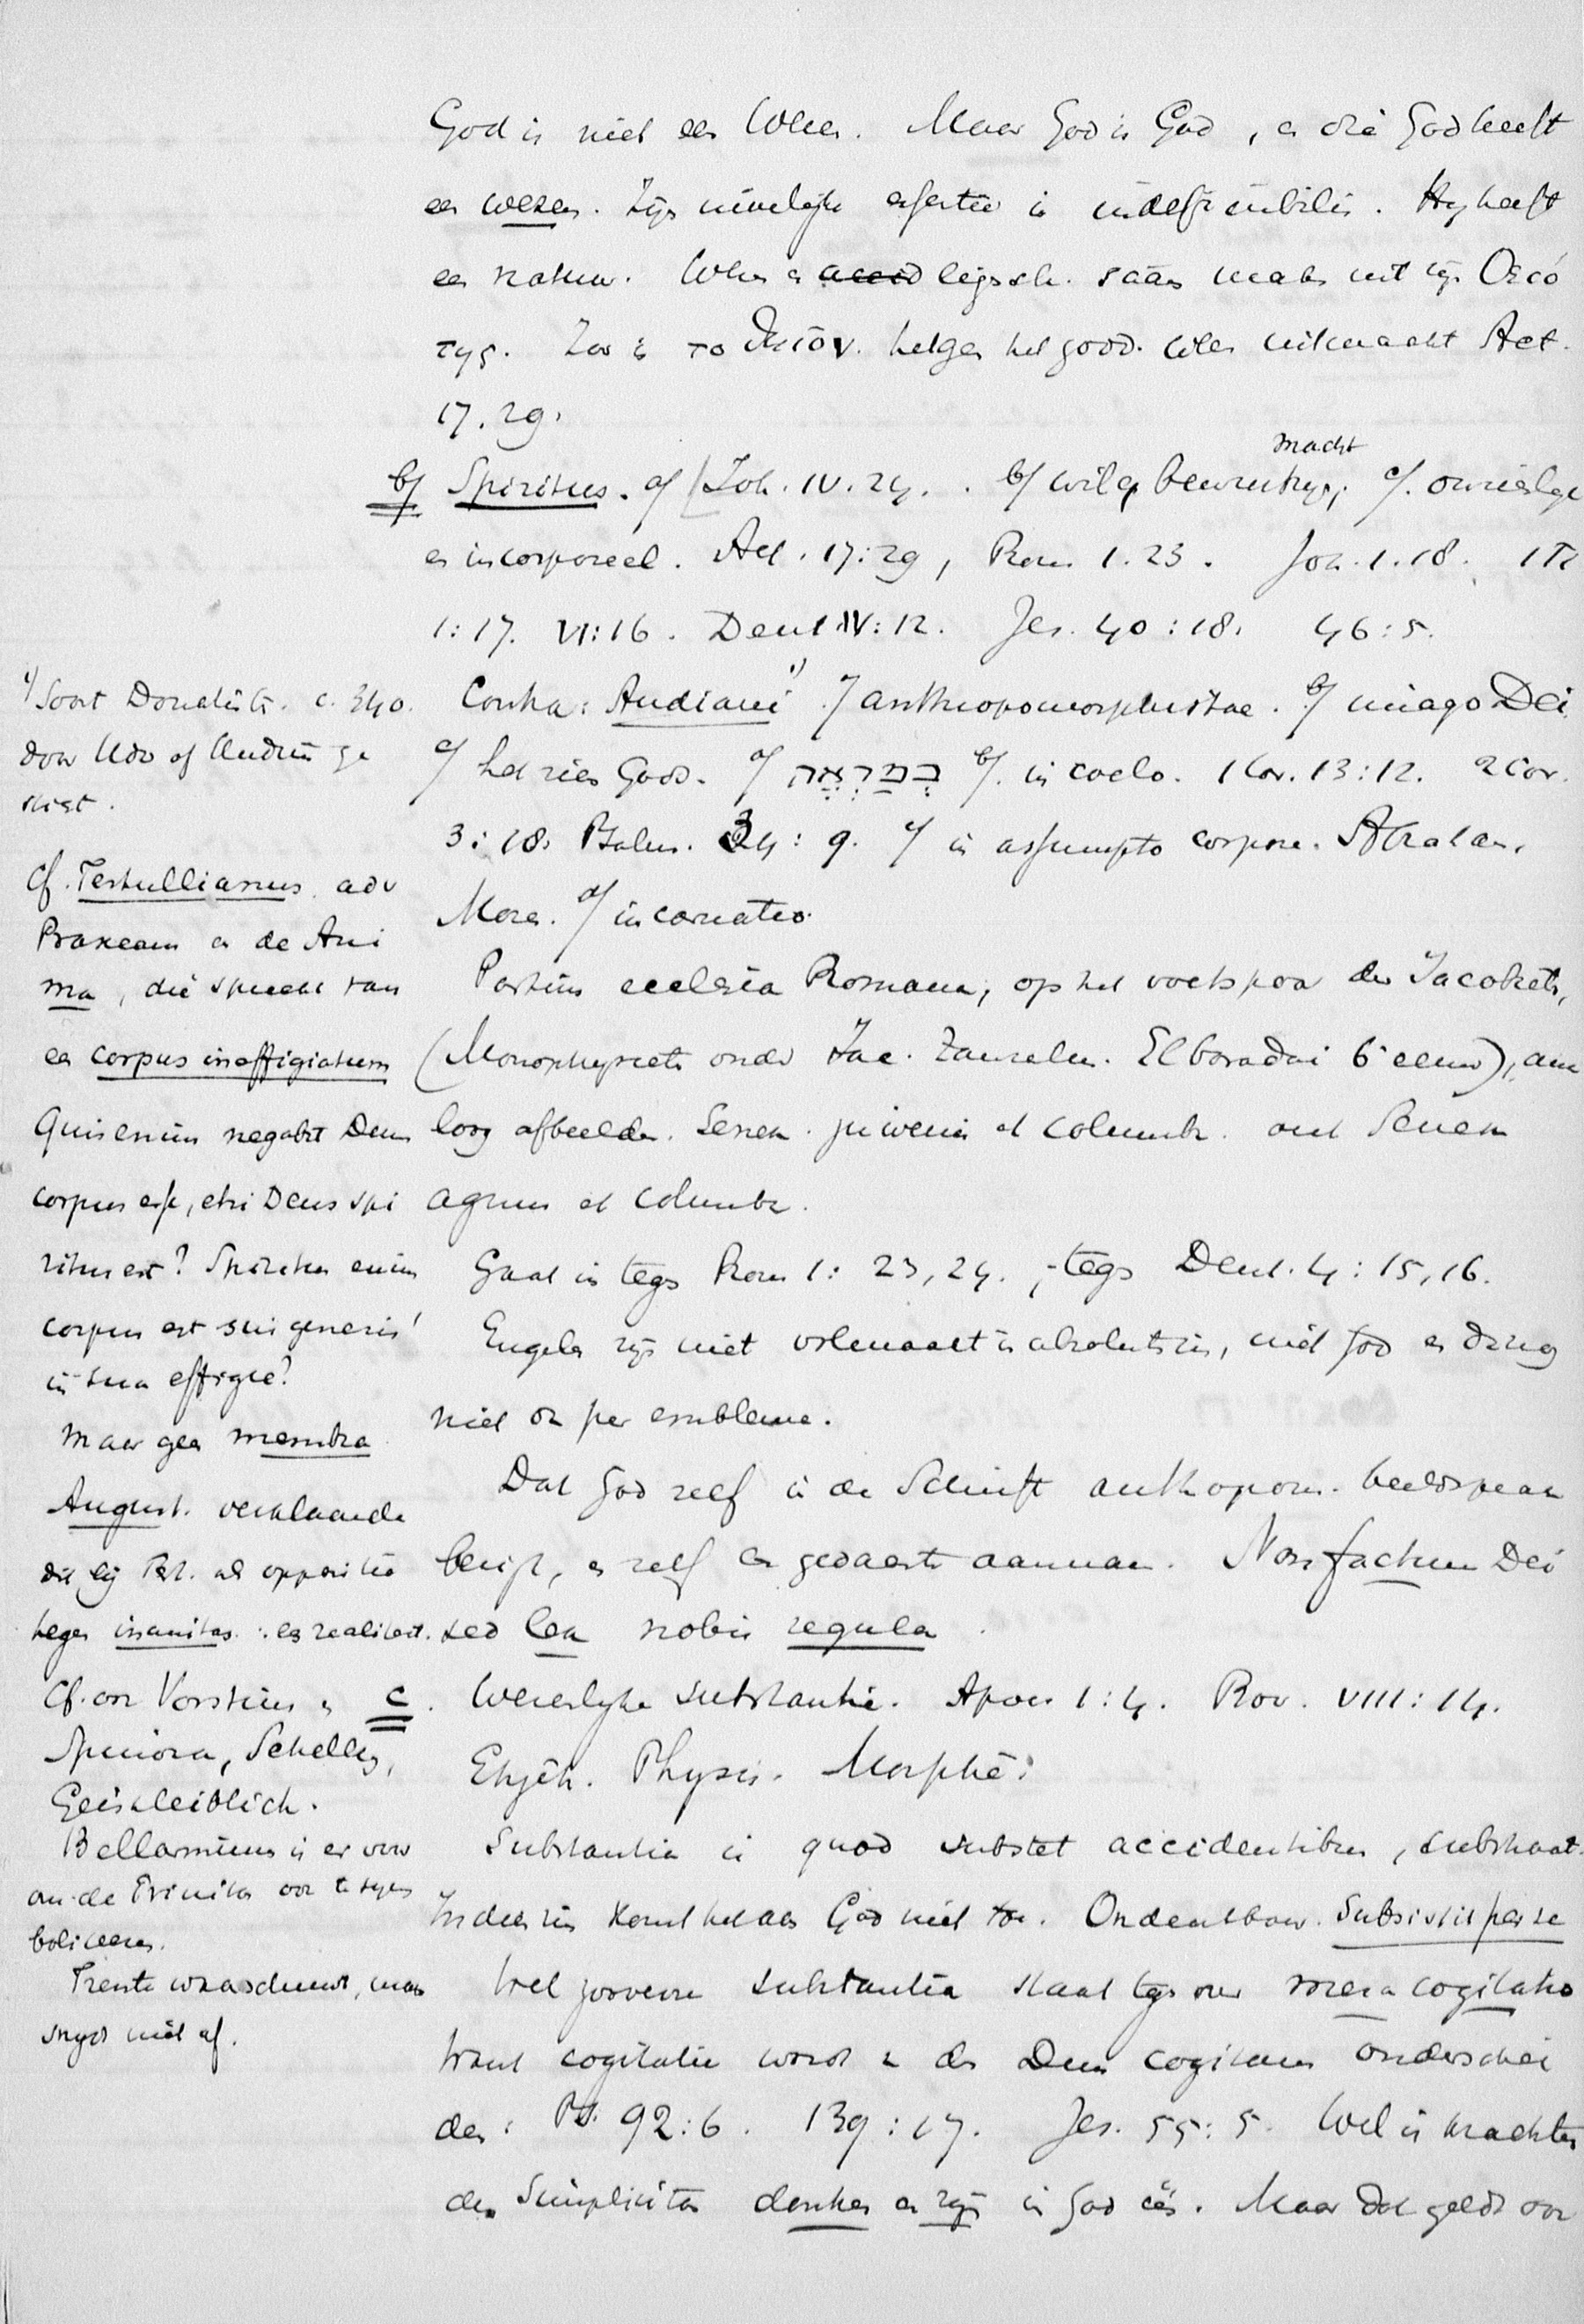 God is niet een Wezen. Maar God is God, en die God heeft
een wezen. Zijn innerlijke essentie is indefinibilis. Hij heeft
een natuur. Wezen en eigensch. saam maken uit zijn
της. Zoo is το θεῖον hetgeen het godd. wezen uitmaakt Act.
17.29.
b/ Spiritus. a/ Joh. IV. 24. b/ wil en bewustzijn, macht c/. onzienlijk
en incorporeel. Act. 17:29, Rom 1.23. Joh. 1.18. 1 Ti
1:17. VI:16. Deut IV:12. Jes. 40:18. 46:5.
Contra: Audiani 1) a/ anthropomorphistae. b/ imago Dei
c/ het zien Gods. a/ בְּמַרְאָה b/. in coelo. 1 Cor. 13:12. 2 Cor.
3:18. Psalm. 34:9. c/ in assumpto corpore. Abraham.
Mozes. d/ incarnatio.
Portius ecclesia Romana, op het voetspoor der Jacobiets,
(Monophysiets onder Jac. Zanzalus. El boradai 6e eeuw),
loog afbeelden. Senex. juvenis et columba. out Senex
agnus et columba.
Gaat in tegen Rom 1: 23, 24., tegen Deut. 4:15,16.
Engelen zijn niet volmaakt in absoluten zin, wel God en daarom
niet ook per emblema.
Dat God zelf in de Schrift anthropom. beeldspraak
bezigt, en zelf een gedaante aannam. Non factum Dei
sed lex nobis regula.
c. Wezenlijke substantie. Apoc. 1:4. Rov. VIII:14.
Ehjêh. Physis. Morphê:
Substantia is quod substet accidentibus, substraat.
In deezen zin komt het aan God niet toe. Ondeelbaar. Subsistit per se
Wel zooverre substantia staat tegenover mera cogitatio
want cogitatie wordt van den Deus cogitans onderschei
den: Ps. 92:6. 139:17. Jes. 55:5. Wel is krachtens
den Simplicitas denken en zijn in God één. Maar dat geldt ook
1) Soort Donatisten. c. 340.
door Udo of Audius ge
sticht.
Cf. Tertullianus adv
Praxeam en de Ani
ma, die spreekt van
een corpus ineffigiatum
Quis enim negabit Deum
corpus esse, etsi Deus spi
ritus est? Spiritus enim
corpus est sui generis
in sua effigie?
Maar geen membra
August. verklaarde
dit bij Tert. als oppositie
tegen inanitas: een realiteit.
Cf. ook Vorstius en
Spinoza, Schelling,
Geistleiblich.
Bellarminus is er voor
om de Trinitas ook te sym
boliceeren.
Trente waarschuwt, maar
snijdt niet af.